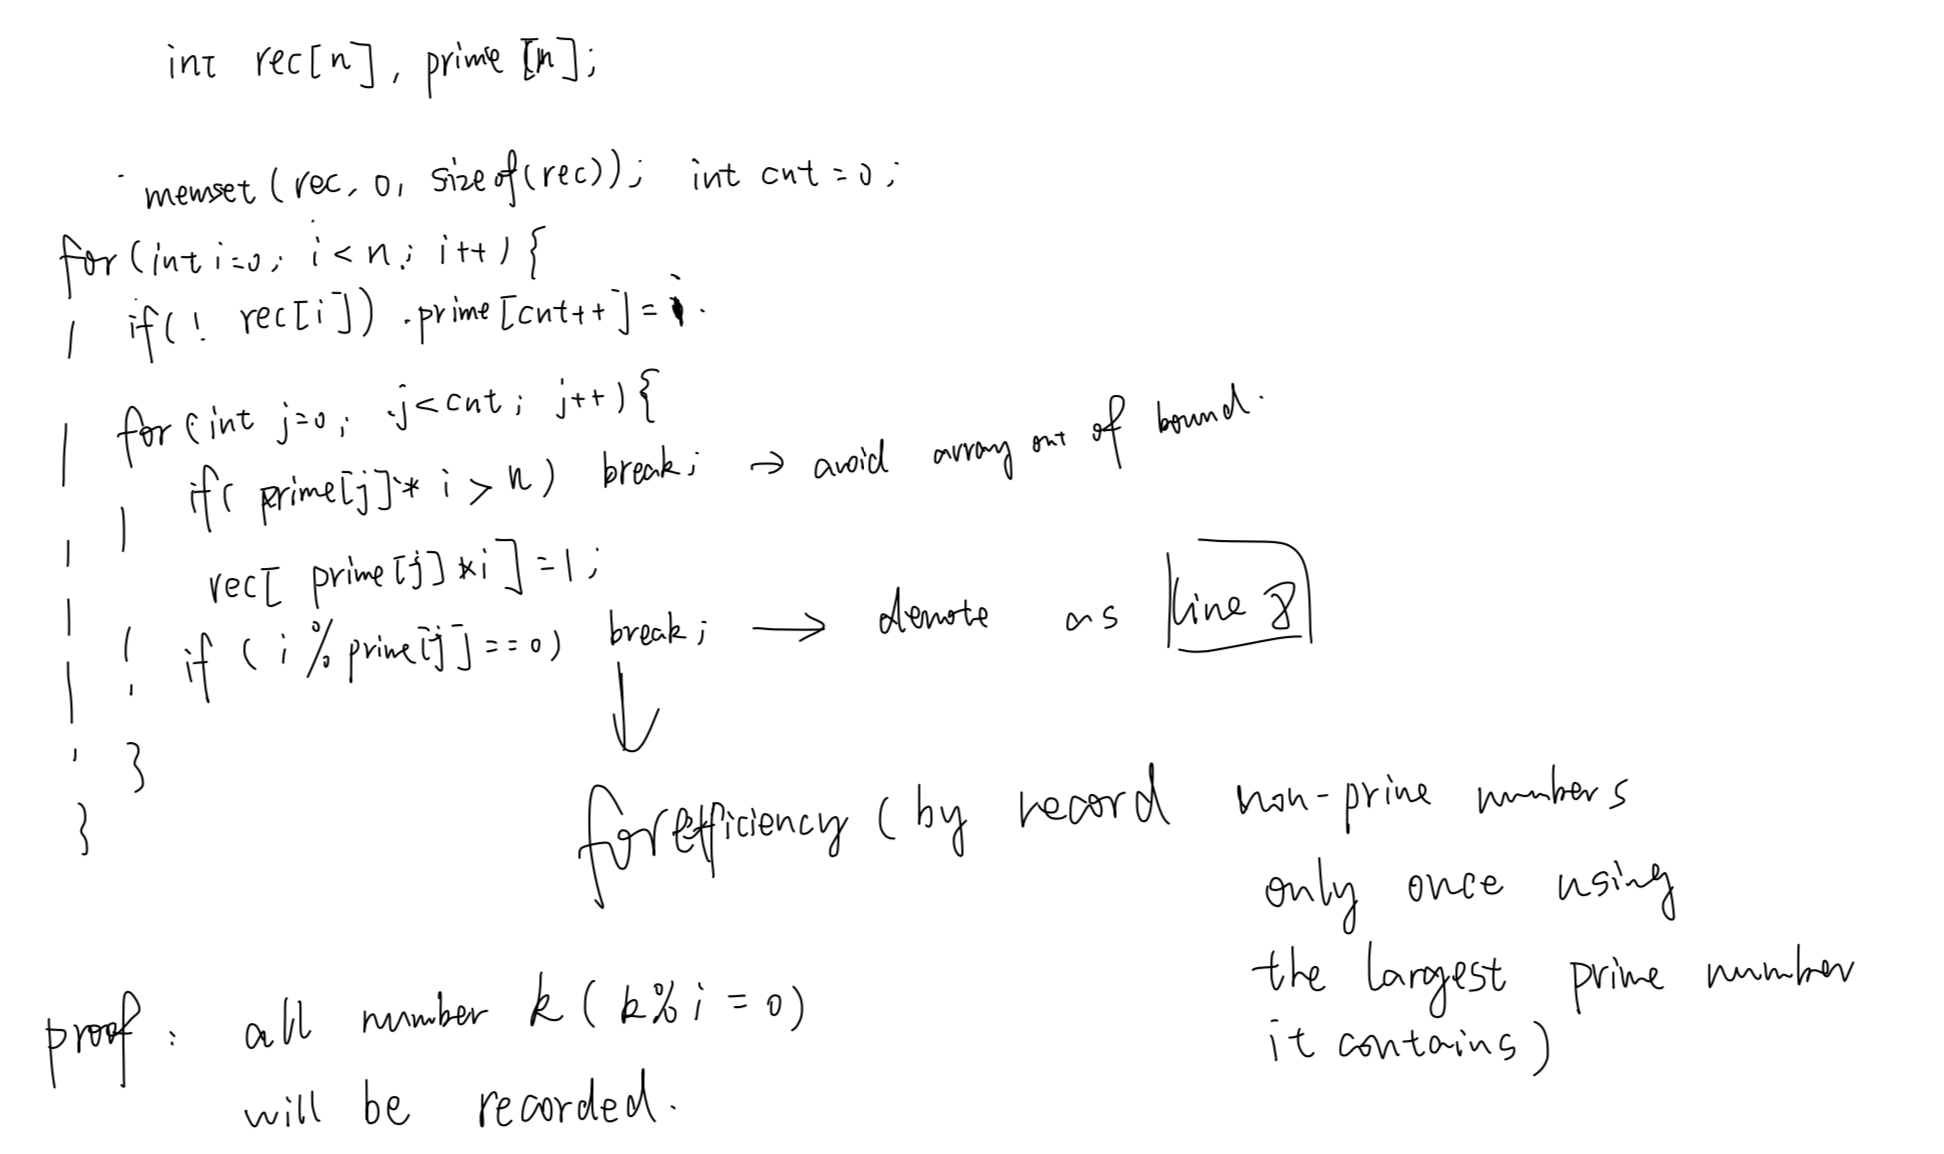 int rec[n], prime[n];
memset(rec, 0, sizeof(rec)); int cnt=0;
for(int i=0; i<n; i++){
if(! rec[i]) prime[cnt++]=i.
for(int j=0; j<cnt; j++){
if( prime[j]* i > n) break; → avoid array out of bound.
rec[ prime[j]*i]=1;
if ( i % prime[j]==0) break; → denote as line 8
}
}
for efficiency (by record non-prime numbers
only once using
the largest prime number
it contains)
proof: all number k (k%i=0)
will be recorded.